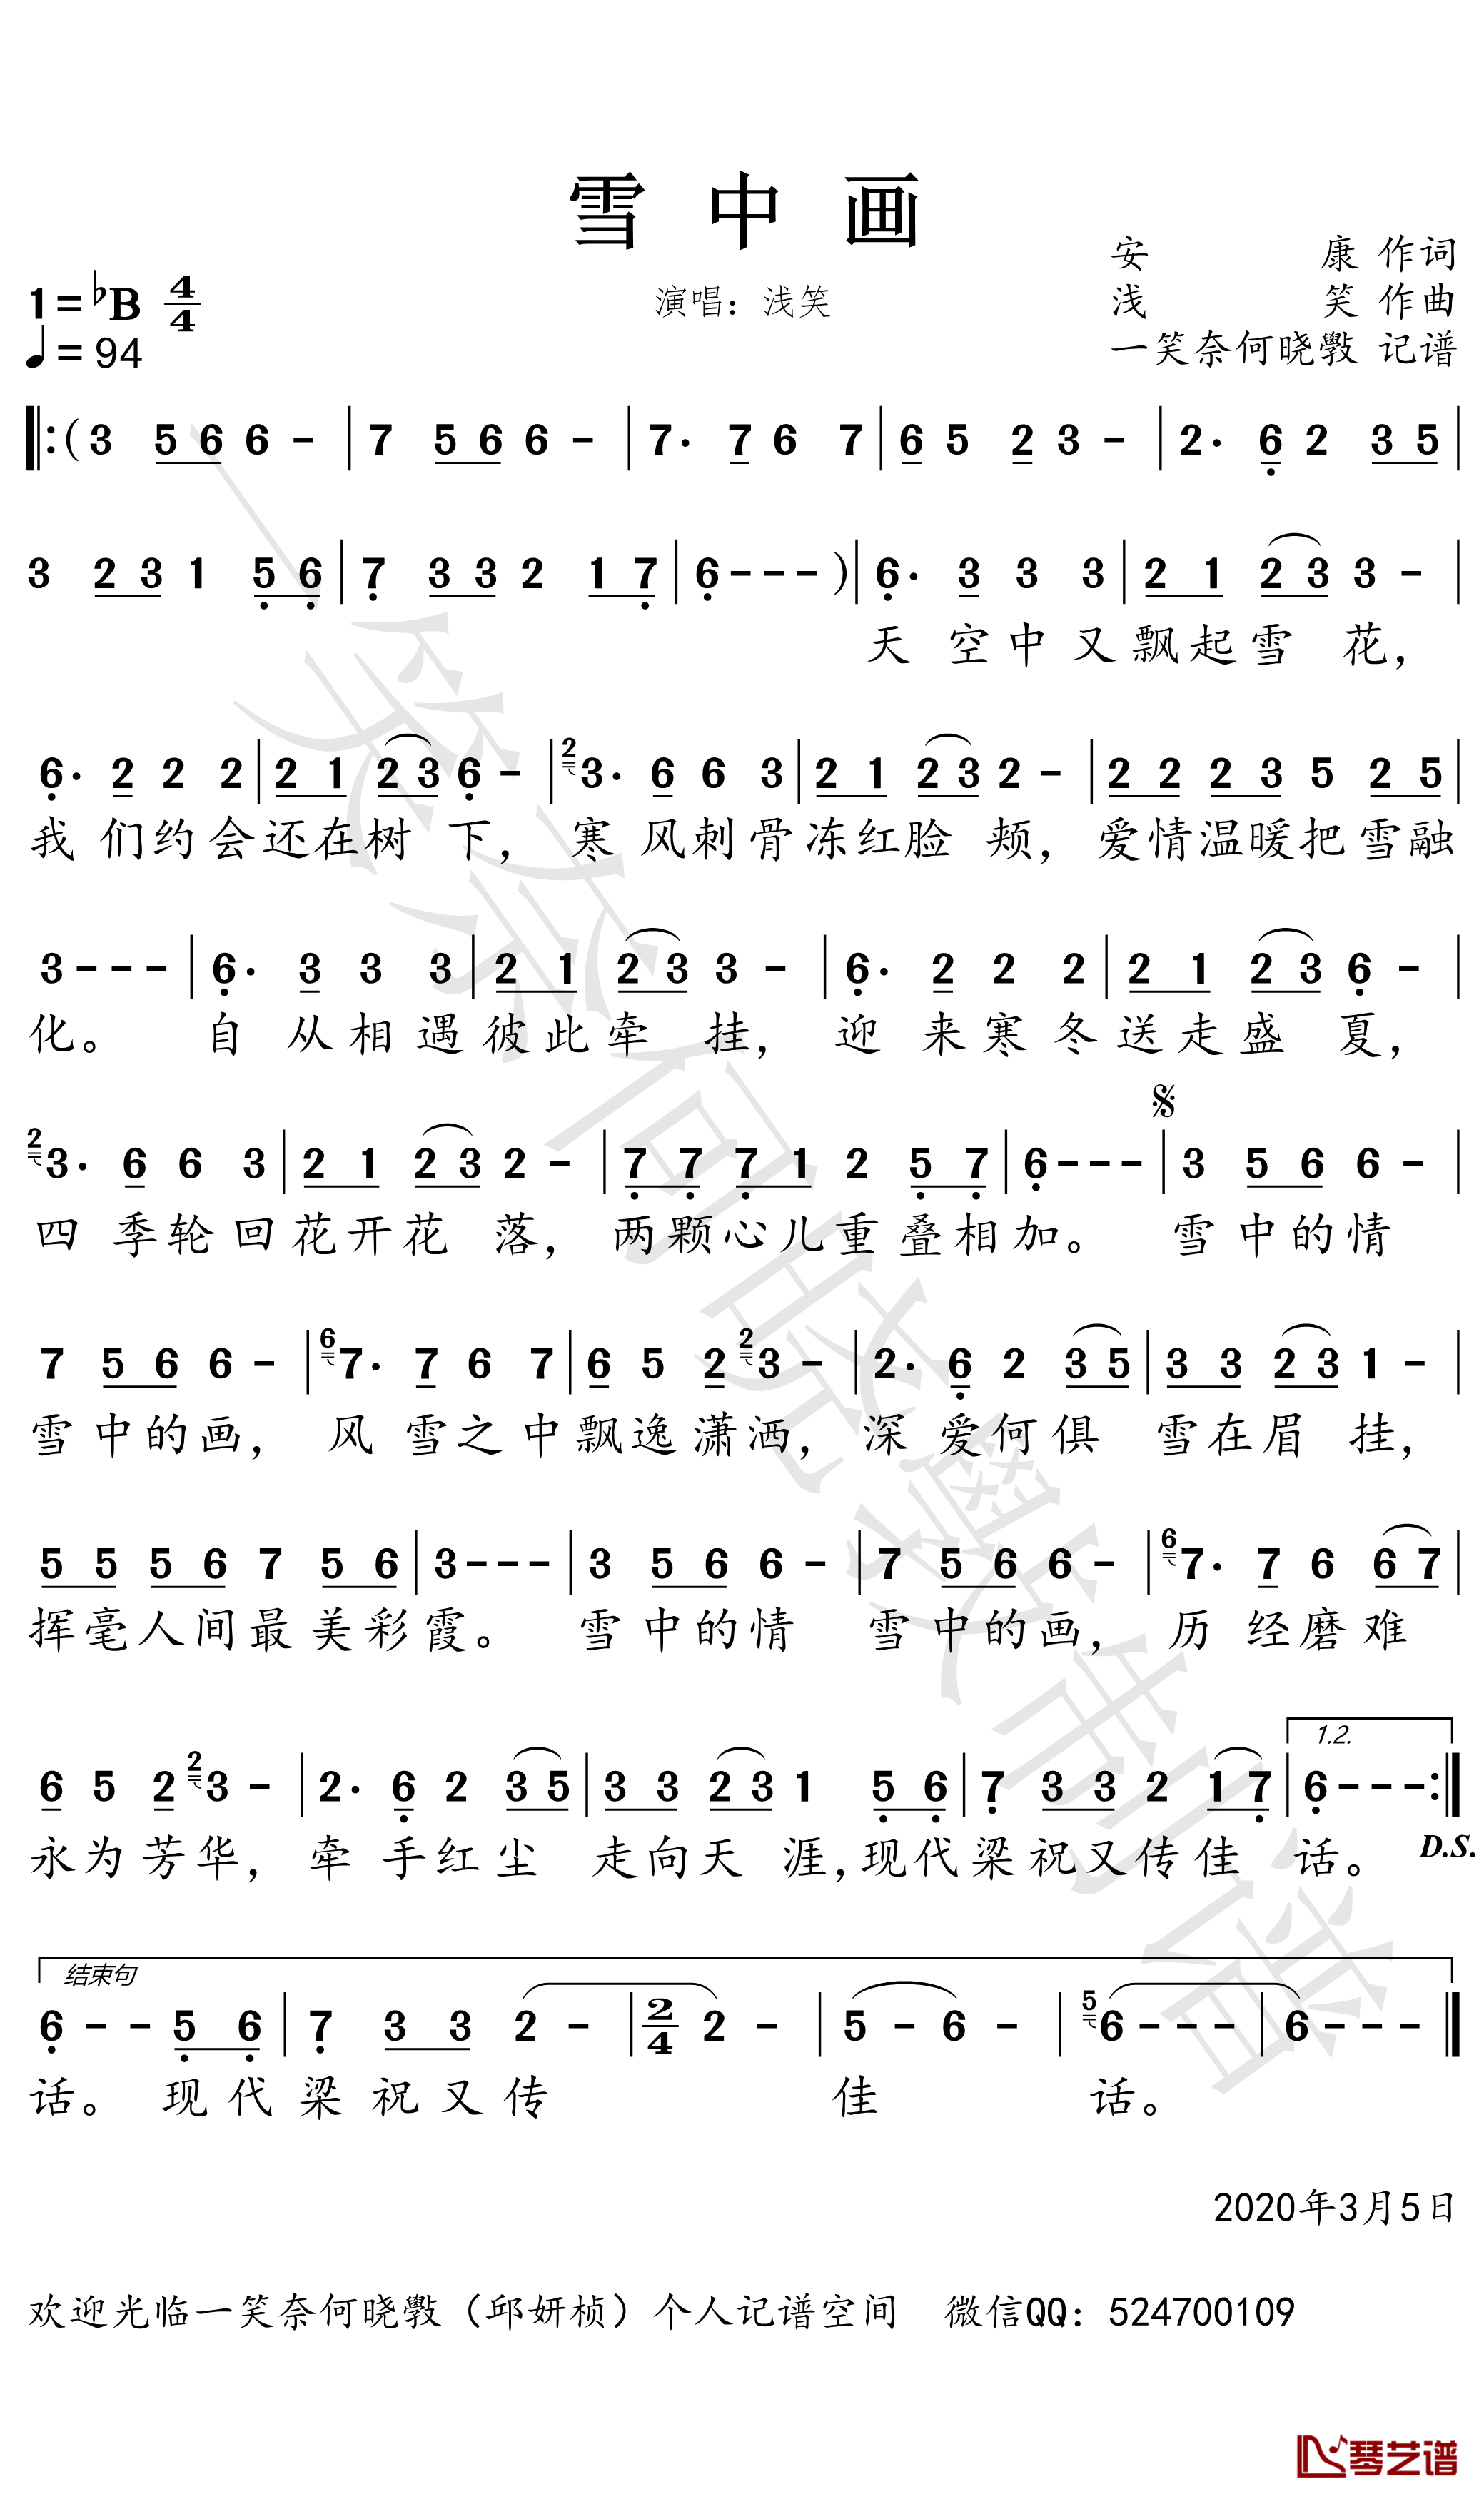 雪中画
安康 作词
1=♭B 4/4
演唱：浅笑
浅笑 作曲
♩=94
一笑奈何晓斅 记谱
‖:(3 5 6 6 - | 7 5 6 6 - | 7. 7 6 7 | 6 5 2 3 - | 2. 6 2 3 5 |
3 2 3 1 5 6 | 7 3 3 2 1 7 | 6 - - - ) | 6. 3 3 3 | 2 1 2 3 3 - |
天空中又飘起雪花，
6. 2 2 2 | 2 1 2 3 6 - | 2 3. 6 6 3 | 2 1 2 3 2 - | 2 2 2 3 5 2 5 |
我们约会还在树下，寒风刺骨冻红脸颊，爱情温暖把雪融
3 - - - | 6. 3 3 3 | 2 1 2 3 3 - | 6. 2 2 2 | 2 1 2 3 6 - |
化。自从相遇彼此牵挂，迎来寒冬送走盛夏，
2 3. 6 6 3 | 2 1 2 3 2 - | 7 7 7 1 2 5 7 | 6 - - - | 𝄋 3 5 6 6 - |
四季轮回花开花落，两颗心儿重叠相加。雪中的情
7 5 6 6 - | 6 7. 7 6 7 | 6 5 2 2 3 - | 2. 6 2 3 5 | 3 3 2 3 1 - |
雪中的画，风雪之中飘逸潇洒，深爱何俱雪在眉挂，
5 5 5 6 7 5 6 | 3 - - - | 3 5 6 6 - | 7 5 6 6 - | 6 7. 7 6 6 7 |
挥毫人间最美彩霞。雪中的情雪中的画，历经磨难
1.2.
6 5 2 2 3 - | 2. 6 2 3 5 | 3 3 2 3 1 5 6 | 7 3 3 2 1 7 | 6 - - - :‖
永为芳华，牵手红尘走向天涯，现代梁祝又传佳话。 D.S.
结束句
6 - - 5 6 | 7 3 3 2 - | 2/4 2 - | 5 - 6 - | 5 6 - - - | 6 - - - ‖
话。现代梁祝又传佳话。
2020年3月5日
欢迎光临一笑奈何晓斅（邱妍桢）个人记谱空间 微信QQ：524700109
琴艺谱
一笑奈何晓斅制谱